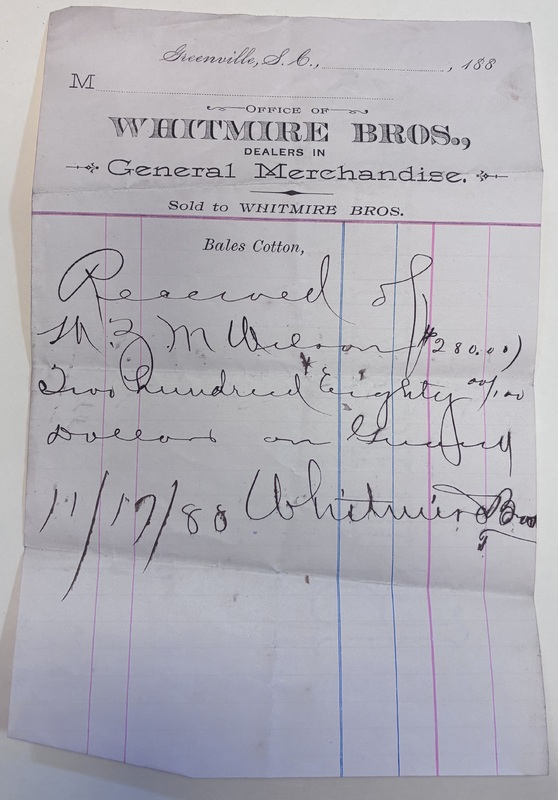 Greenville, S. C., , 188
M
OFFICE OF
WHITMIRE BROS.,
DEALERS IN
General Merchandise.
Sold to WHITMIRE BROS.
Bales Cotton,
Received of
M Wilson ($280.00)
Two hundred Eighty 00/100
Dollars on
11/17/88 Whitmire Bros